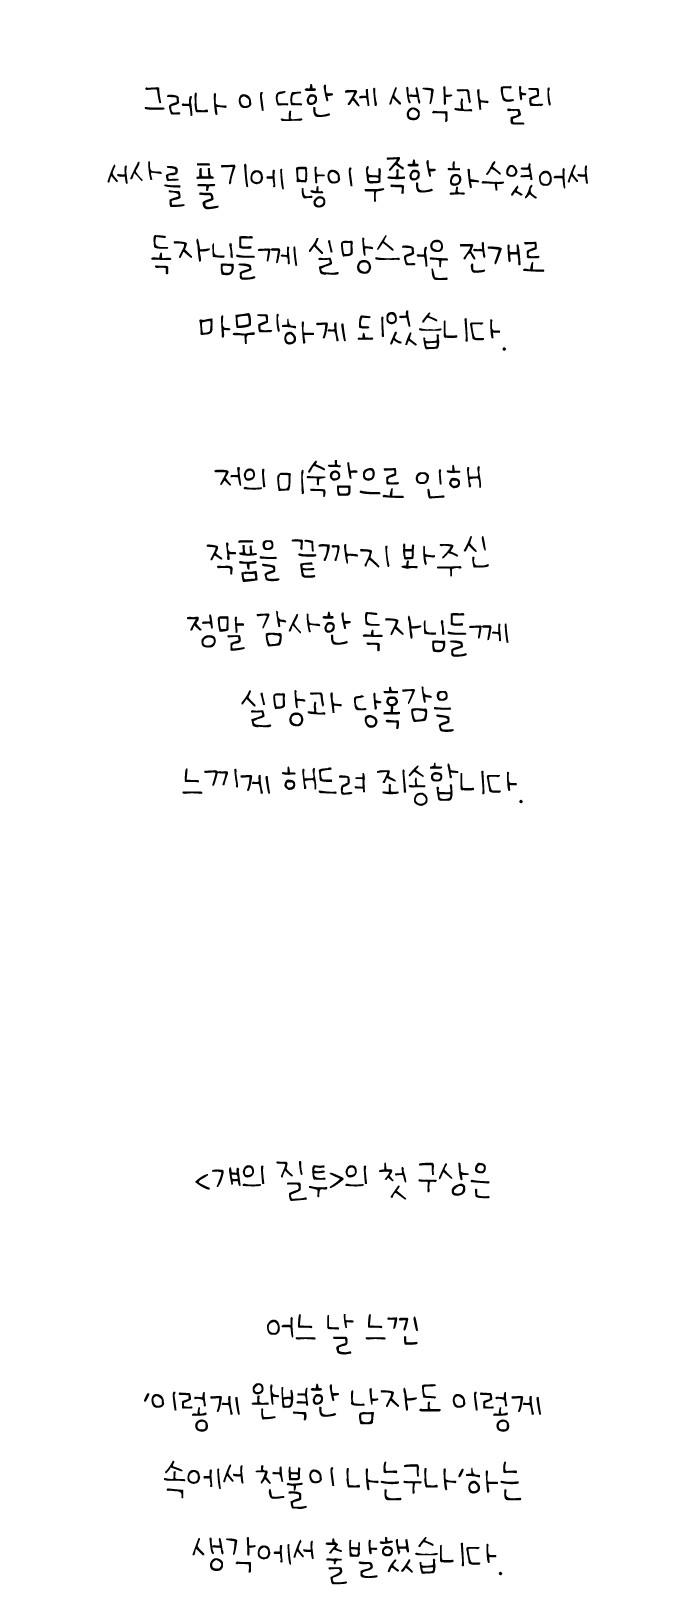 그러나 이 또한 제 생각과 달리
서사를 풀기에 많이 부족한 화수였어서
독자님들께 실망스러운 전개로
마무리하게 되었습니다.
저의 미숙함으로 인해
작품을 끝까지 봐주신
정말 감사한 독자님들께
실망과 당혹감을
느끼게 해드려 죄송합니다.
<걔의 질투>의 첫 구상은
어느 날 느낀
'이렇게 완벽한 남자도 이렇게
속에서 천불이 나는구나'하는
생각에서 출발했습니다.